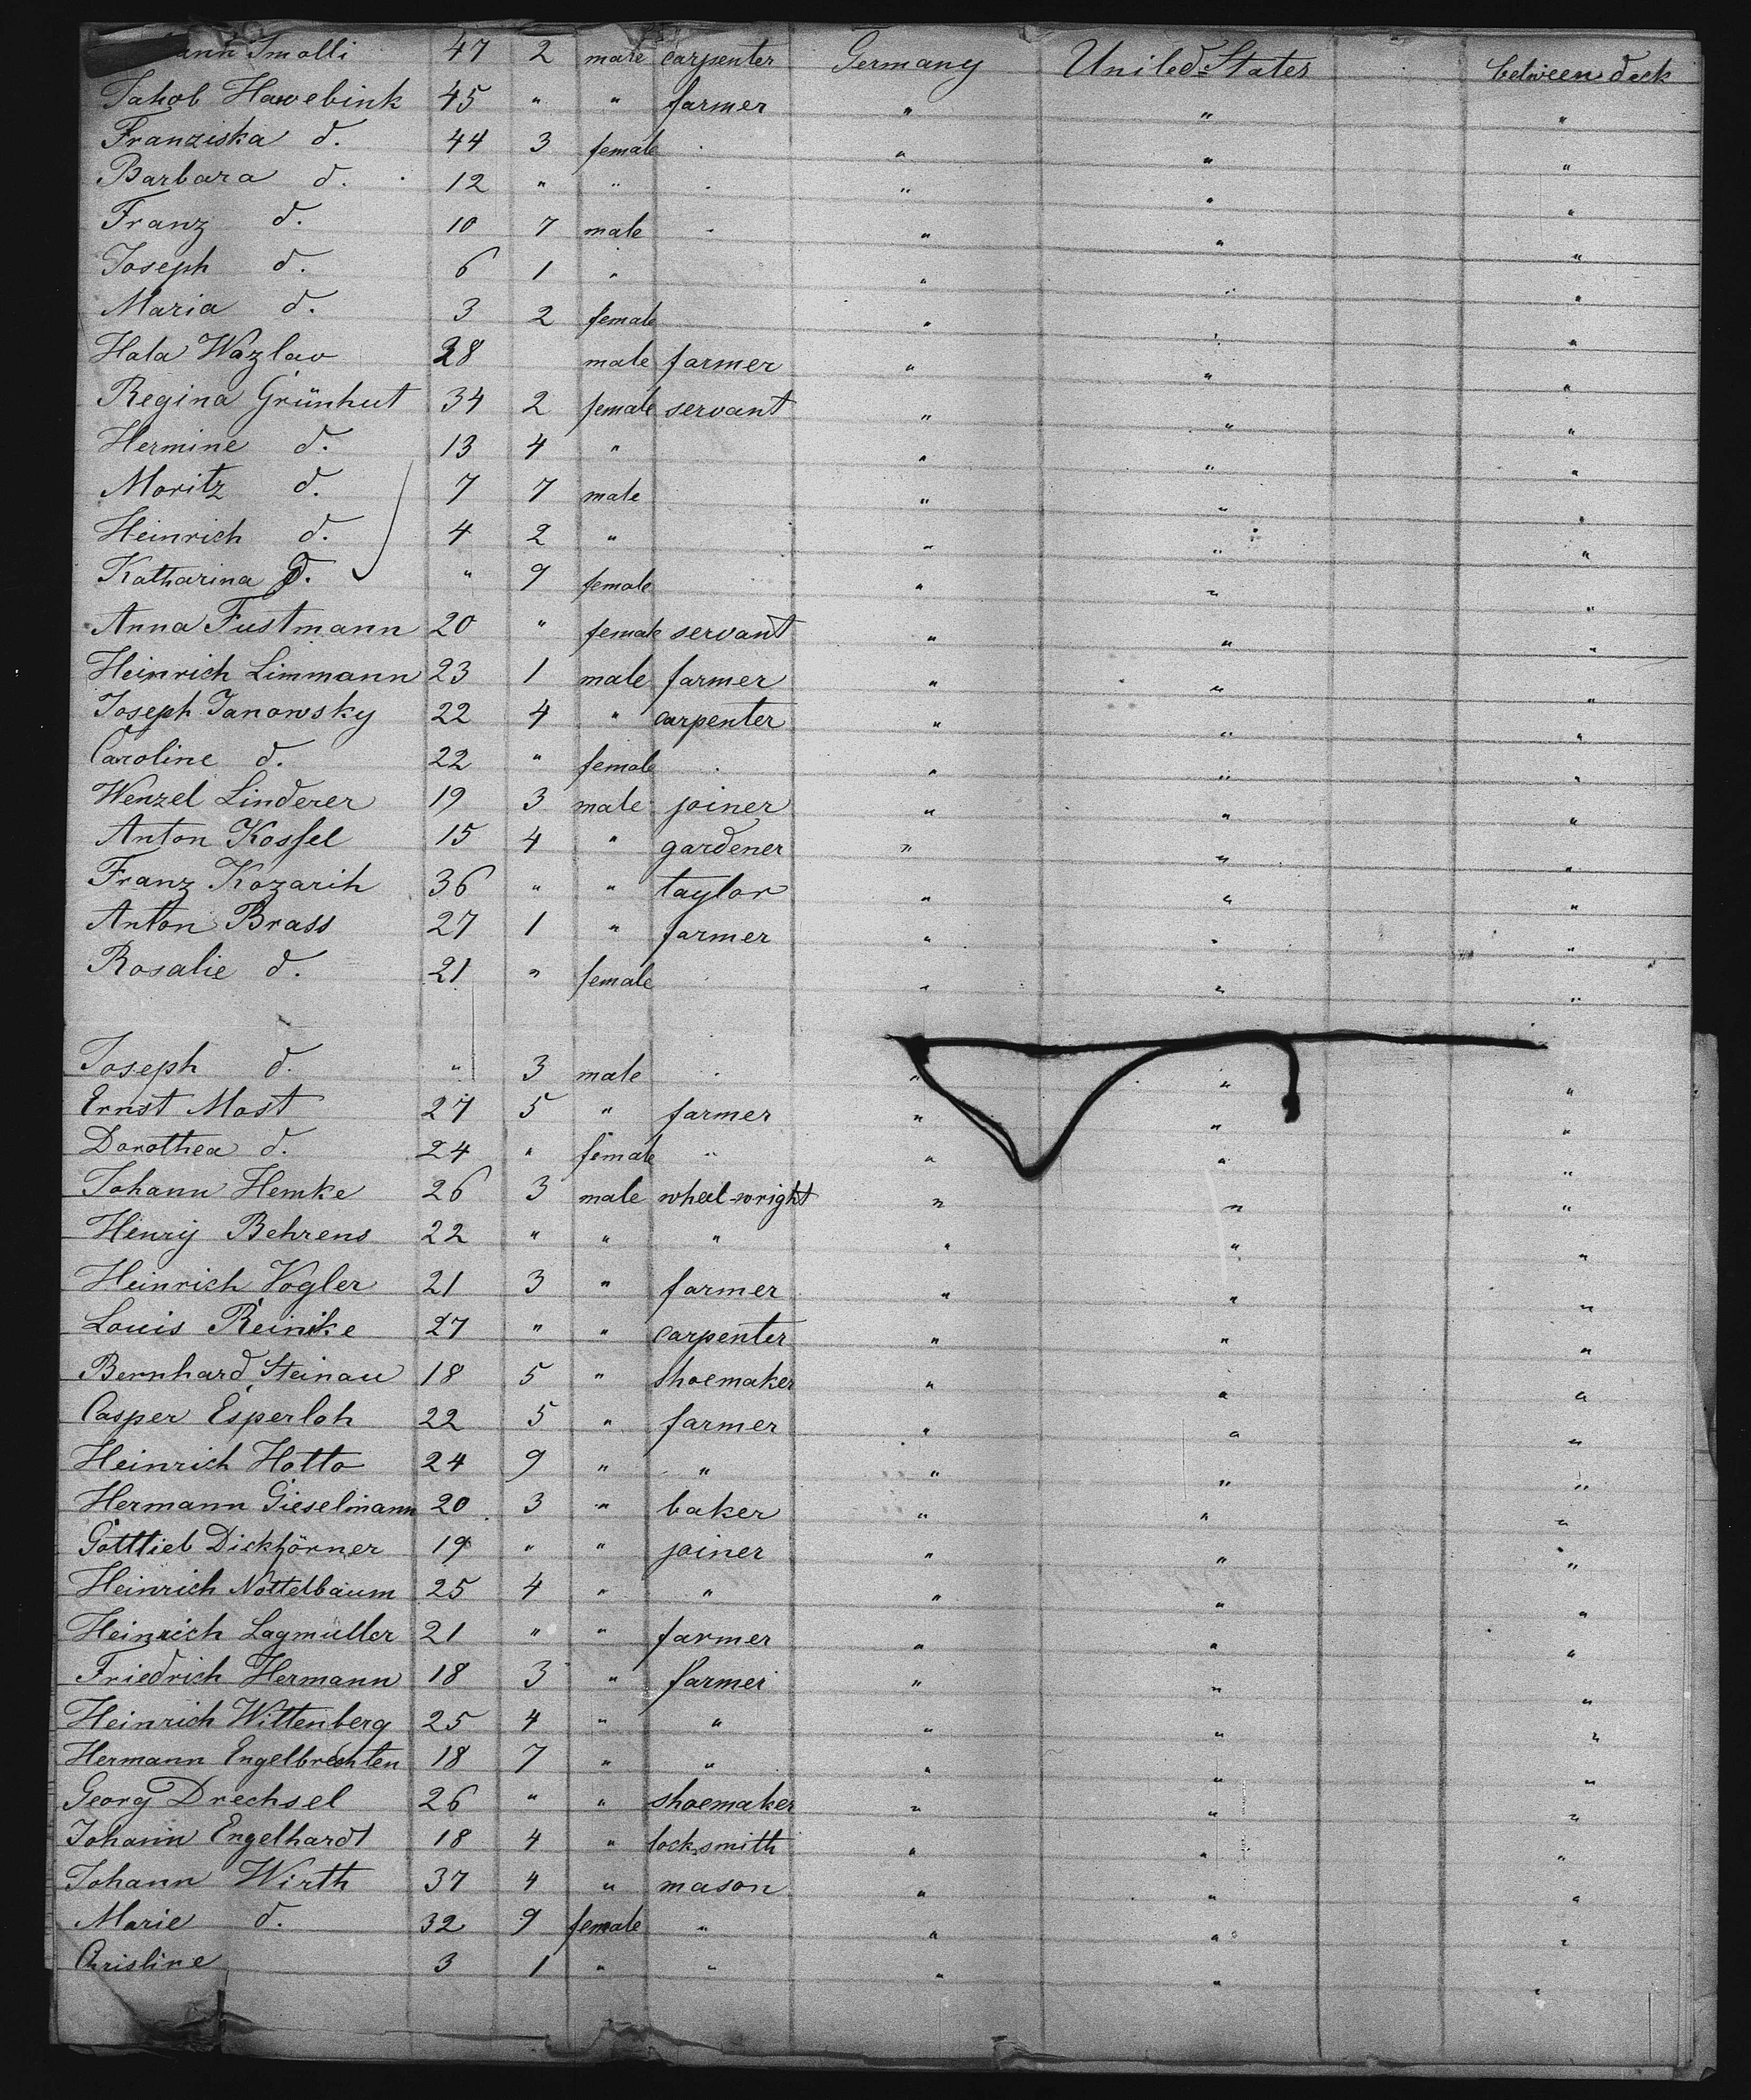 ann Smolli 47 2 male carpenter Germany United States between deck
Jakob Hawebink 45 " " farmer " " "
Franziska d. 44 3 female " " "
Barbara d. 12 " " " " "
Franz d. 10 7 male " " "
Joseph d. 6 1 " " " "
Maria d. 3 2 female " " "
Hala Wazlav 28 male farmer " " "
Regina Grünhut 34 2 female servant " " "
Hermine d. 13 4 " " " "
Moritz d. 7 7 male " " "
Heinrich d. 4 2 " " " "
Katharina d. " 9 female " " "
Anna Fustmann 20 " female servant " " "
Heinrich Limmann 23 1 male farmer " " "
Joseph Janowsky 22 4 " carpenter " " "
Caroline d. 22 " female " " "
Wenzel Linderer 19 3 male joiner " " "
Anton Kossel 15 4 " gardener " " "
Franz Kozarih 36 " " taylor " " "
Anton Brass 27 1 " farmer " " "
Rosalie d. 21 " female " " "
Joseph d. " 3 male " " "
Ernst Most 27 5 " farmer " " "
Dorothea d. 24 " female " " " "
Johann Hemke 26 3 male wheel-wright " " "
Henry Behrens 22 " " " " " "
Heinrich Vogler 21 3 " farmer " " "
Louis Reinike 27 " " carpenter " " "
Bernhard Steinau 18 5 " shoemaker " " "
Casper Esperloh 22 5 " farmer " " "
Heinrich Hotto 24 9 " " " " "
Hermann Gieselmann 20 3 " baker " " "
Gottlieb Dickhörner 19 " " joiner " " "
Heinrich Nottelbaum 25 4 " " " " "
Heinrich Lagmüller 21 " " farmer " " "
Friedrich Hermann 18 3 " farmer " " "
Heinrich Wittenberg 25 4 " " " " "
Hermann Engelbrechten 18 7 " " " " "
Georg Drechsel 26 " " shoemaker " " "
Johann Engelhardt 18 4 " locksmith " " "
Johann Wirth 37 4 " mason " " "
Marie d. 32 9 female " " " "
Christine 3 1 " " " " "